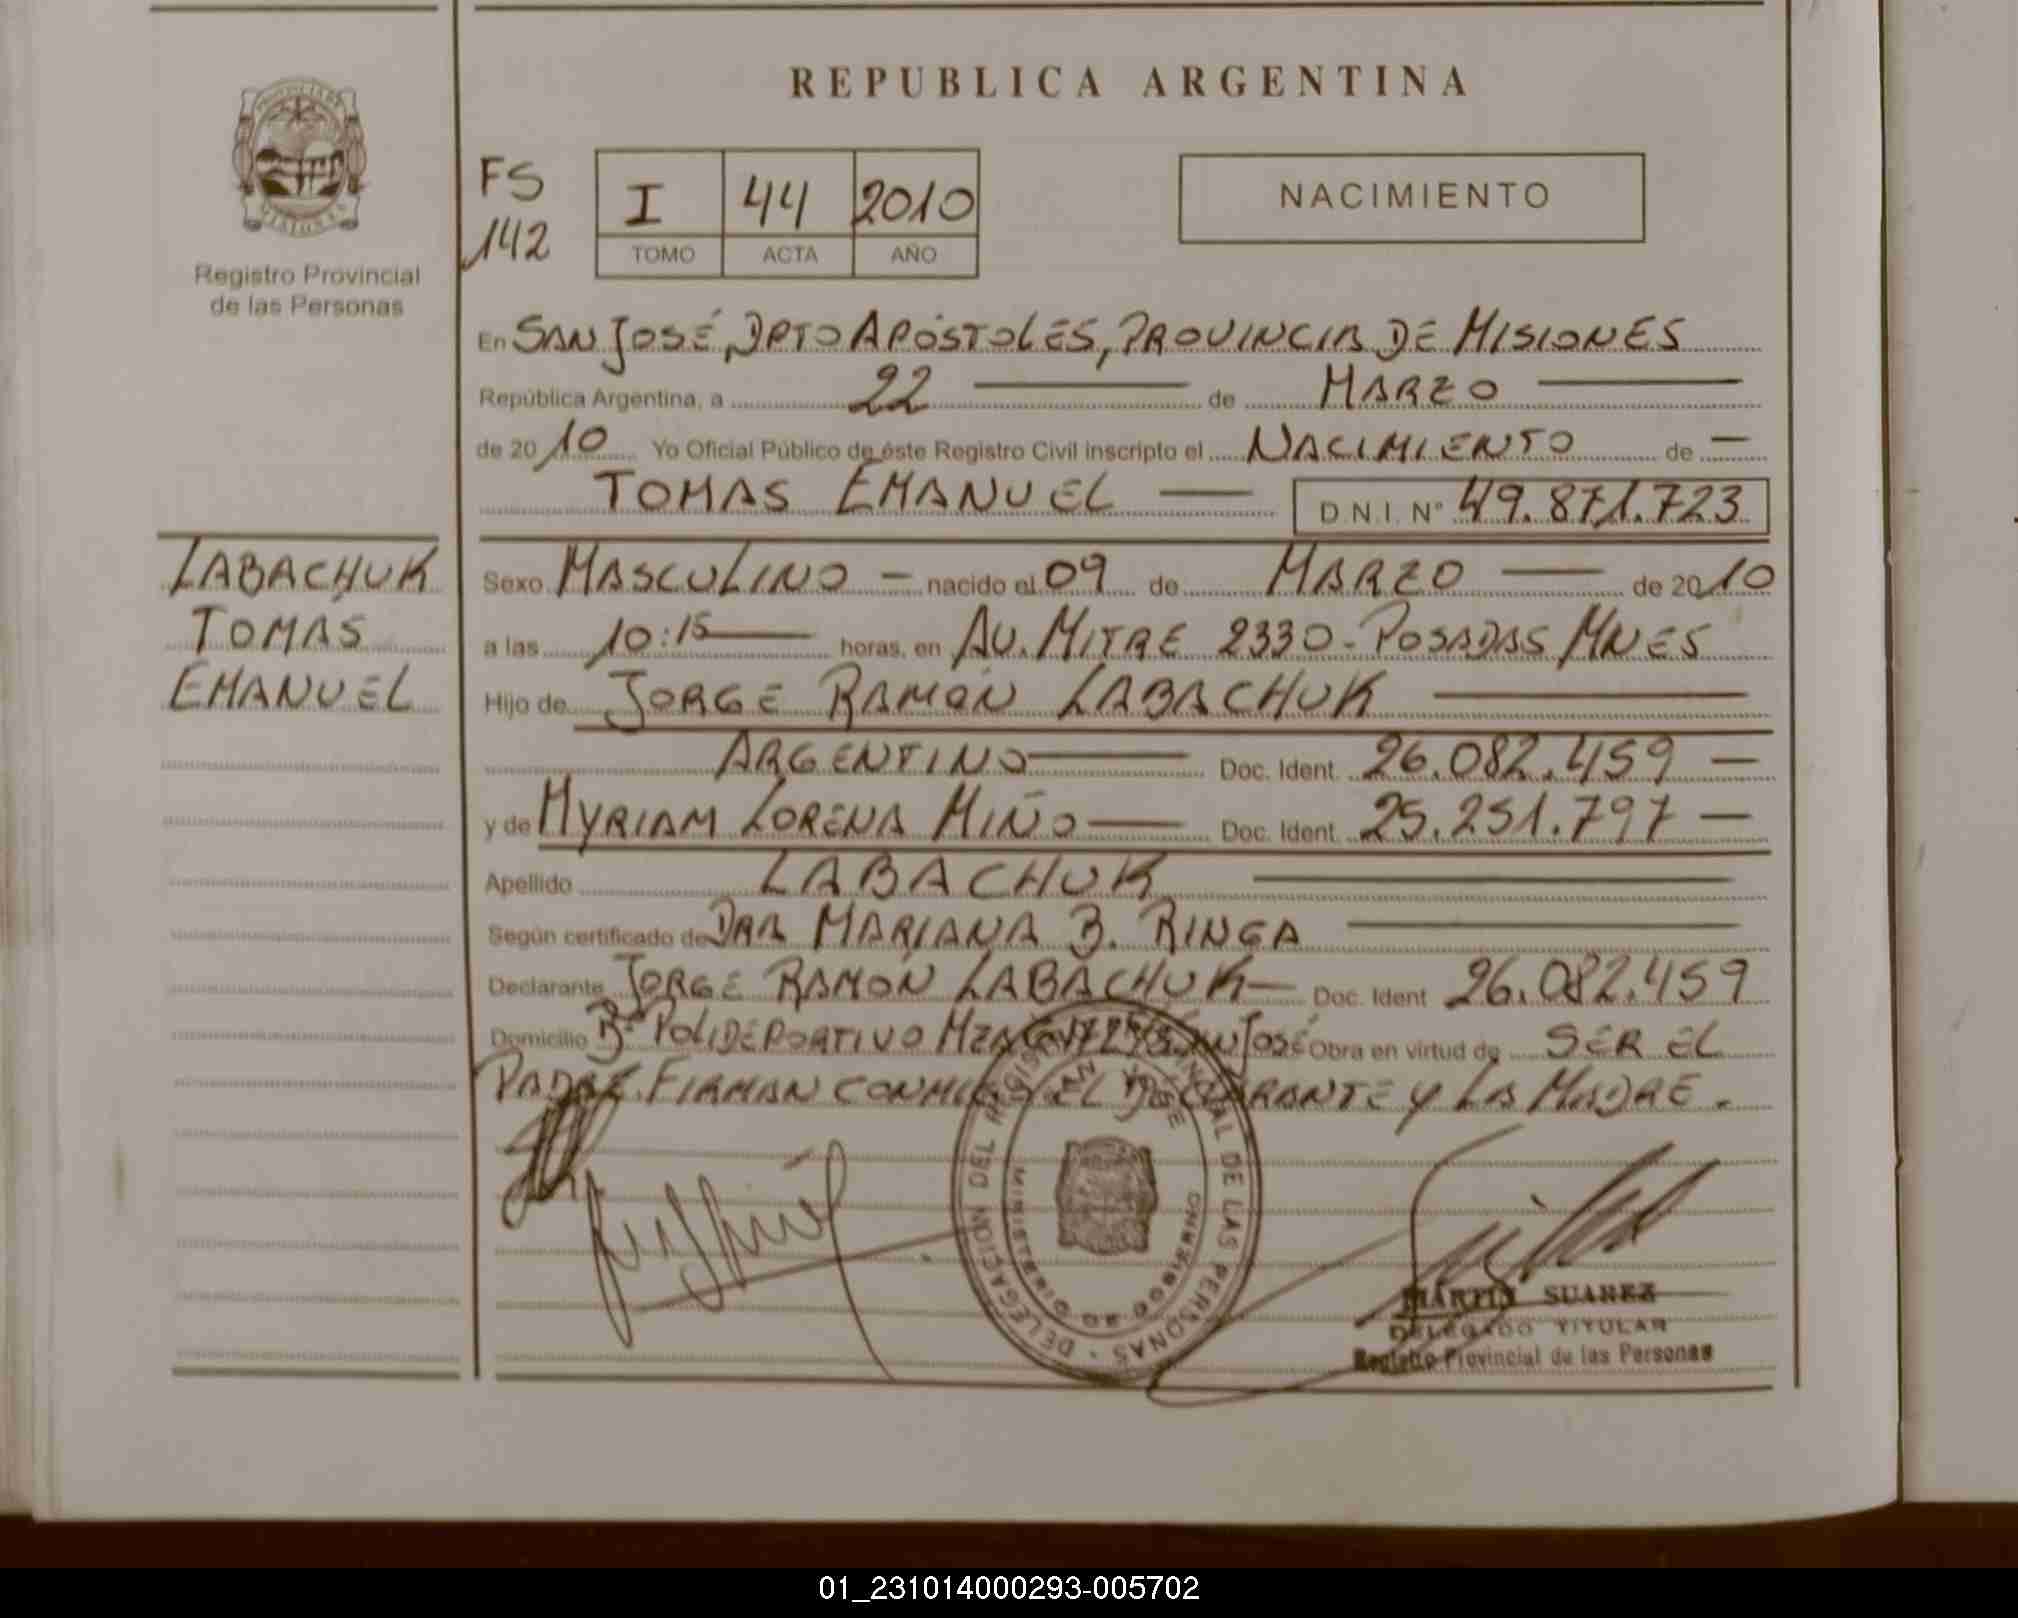 REPUBLICA ARGENTINA
PROVINCIA DE MISIONES
Registro Provincial
de las Personas
FS
142
I 44 2010
TOMO ACTA AÑO
NACIMIENTO
En SAN JOSÉ, DPTO APÓSTOLES, PROVINCIA DE MISIONES
República Argentina, a 22 de MARZO
de 2010 Yo Oficial Público de éste Registro Civil inscripto el NACIMIENTO de
TOMAS EMANUEL D.N.I. N° 49.871.723
LABACHUK
TOMÁS
EMANUEL
Sexo MASCULINO - nacido el 09 de MARZO de 2010
a las 10:15 horas, en AV. MITRE 2330 - POSADAS MNES
Hijo de JORGE RAMÓN LABACHUK
ARGENTINO Doc. Ident. 26.082.459
y de MYRIAM LORENA MIÑO Doc. Ident. 25.251.797
Apellido LABACHUK
Según certificado de DRA MARIANA B. RINGA
Declarante JORGE RAMÓN LABACHUK Doc. Ident 26.082.459
Domicilio B° POLIDEPORTIVO MZA SAN JOSÉ Obra en virtud de SER EL
PADRE. FIRMAN CONMIGO EL DECLARANTE Y LA MADRE.
DELEGACION DEL REGISTRO PROVINCIAL DE LAS PERSONAS
SAN JOSE
MINISTERIO DE GOBIERNO
MARTIN SUAREZ
DELEGADO TITULAR
Registro Provincial de las Personas
01_231014000293-005702